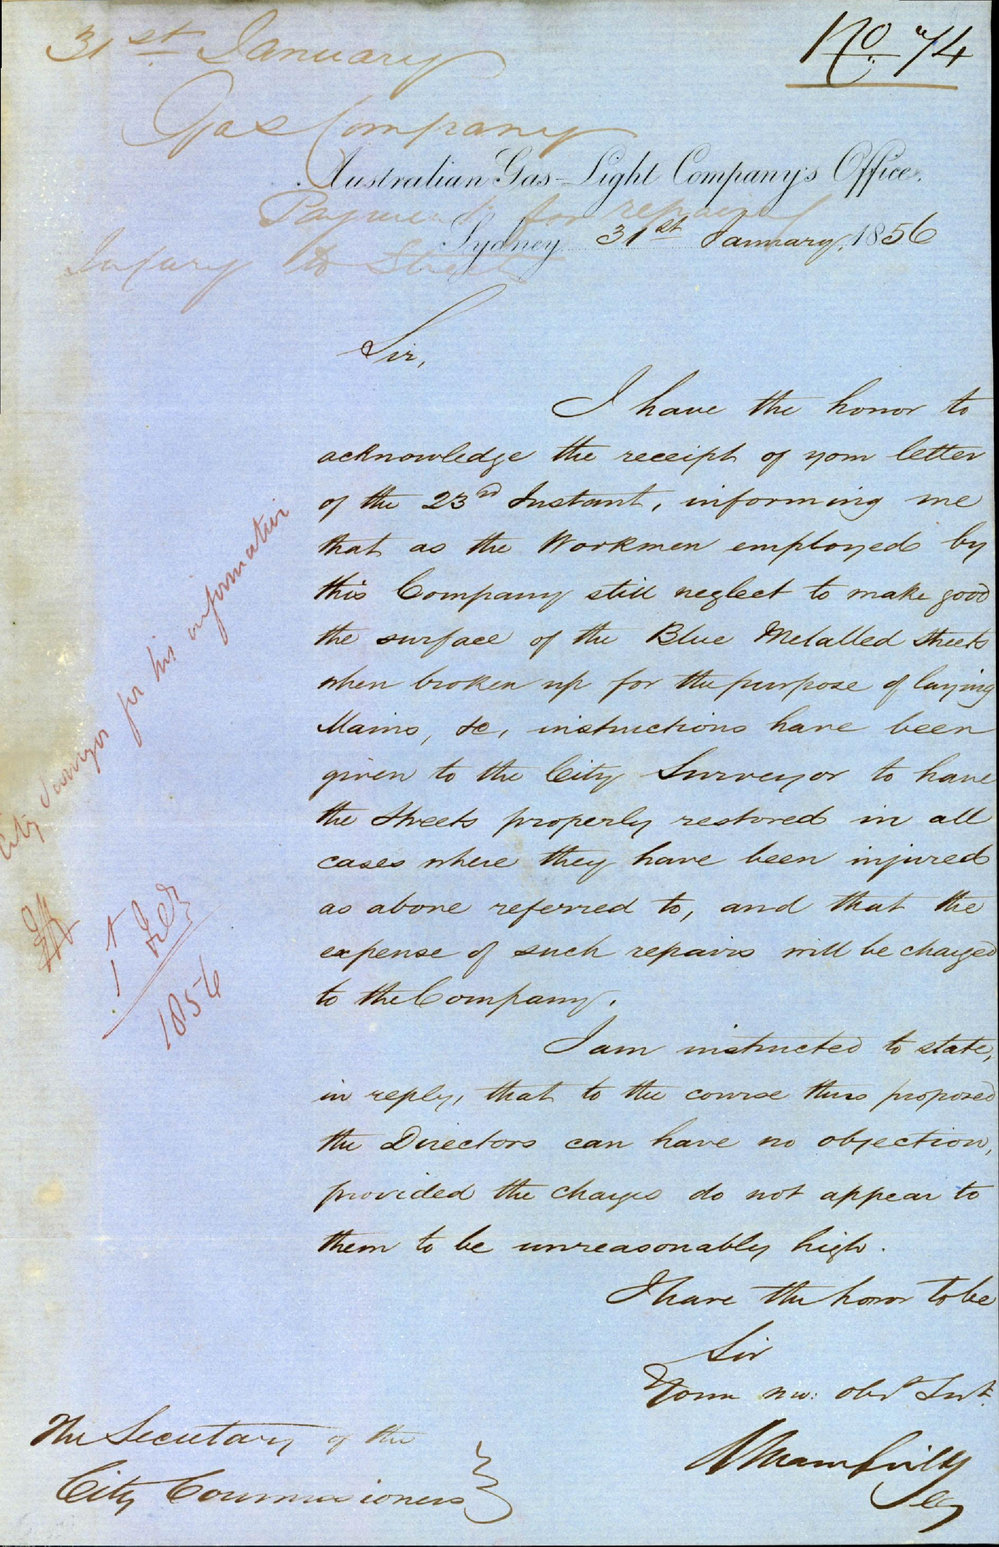 31st January
No. 74
Gas Company
Australian Gas-Light Company's Office.
Payment for repairing
Sydney 31st January, 1856
Injury to Streets
Sir,
I have the honor to
acknowledge the receipt of your letter
of the 23rd Instant, informing me
that as the Workmen employed by
this Company still neglect to make good
the surface of the Blue Metalled Streets
when broken up for the purpose of laying
Mains, &c, instructions have been
given to the City Surveyor to have
the Streets properly restored in all
cases where they have been injured
as above referred to, and that the
expense of such repairs will be charged
to the Company.
I am instructed to state,
in reply, that to the course thus proposed
the Directors can have no objection,
provided the charges do not appear to
them to be unreasonably high.
I have the honor to be
Sir
Your mo: obdt Svt.
Secy
The Secretary of the
City Commissioners
City Surveyor for his information
1 Feb
1856